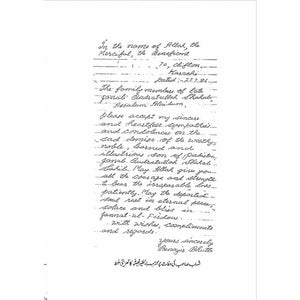 In the name of Allah, the
Merciful, the Beneficent
70, Clifton,
Karachi
Dated:- 27.7.86
The family members of late
Janab Qudratullah Shahab
Assalam Alaikum,
Please accept my sincere
and heartfelt sympathies
and condolences on the
sad demise of the worthy,
noble, learned and
illustrious son of Pakistan,
Janab Qudratullah Shahab
Sahib. May Allah give you
all the courage and strength
to bear the irreparable loss
patiently. May the departed
soul rest in eternal peace,
solace and bliss in
Jannat-ul-Firdous.
With wishes, compliments
and regards.
Yours sincerely
Benazir Bhutto